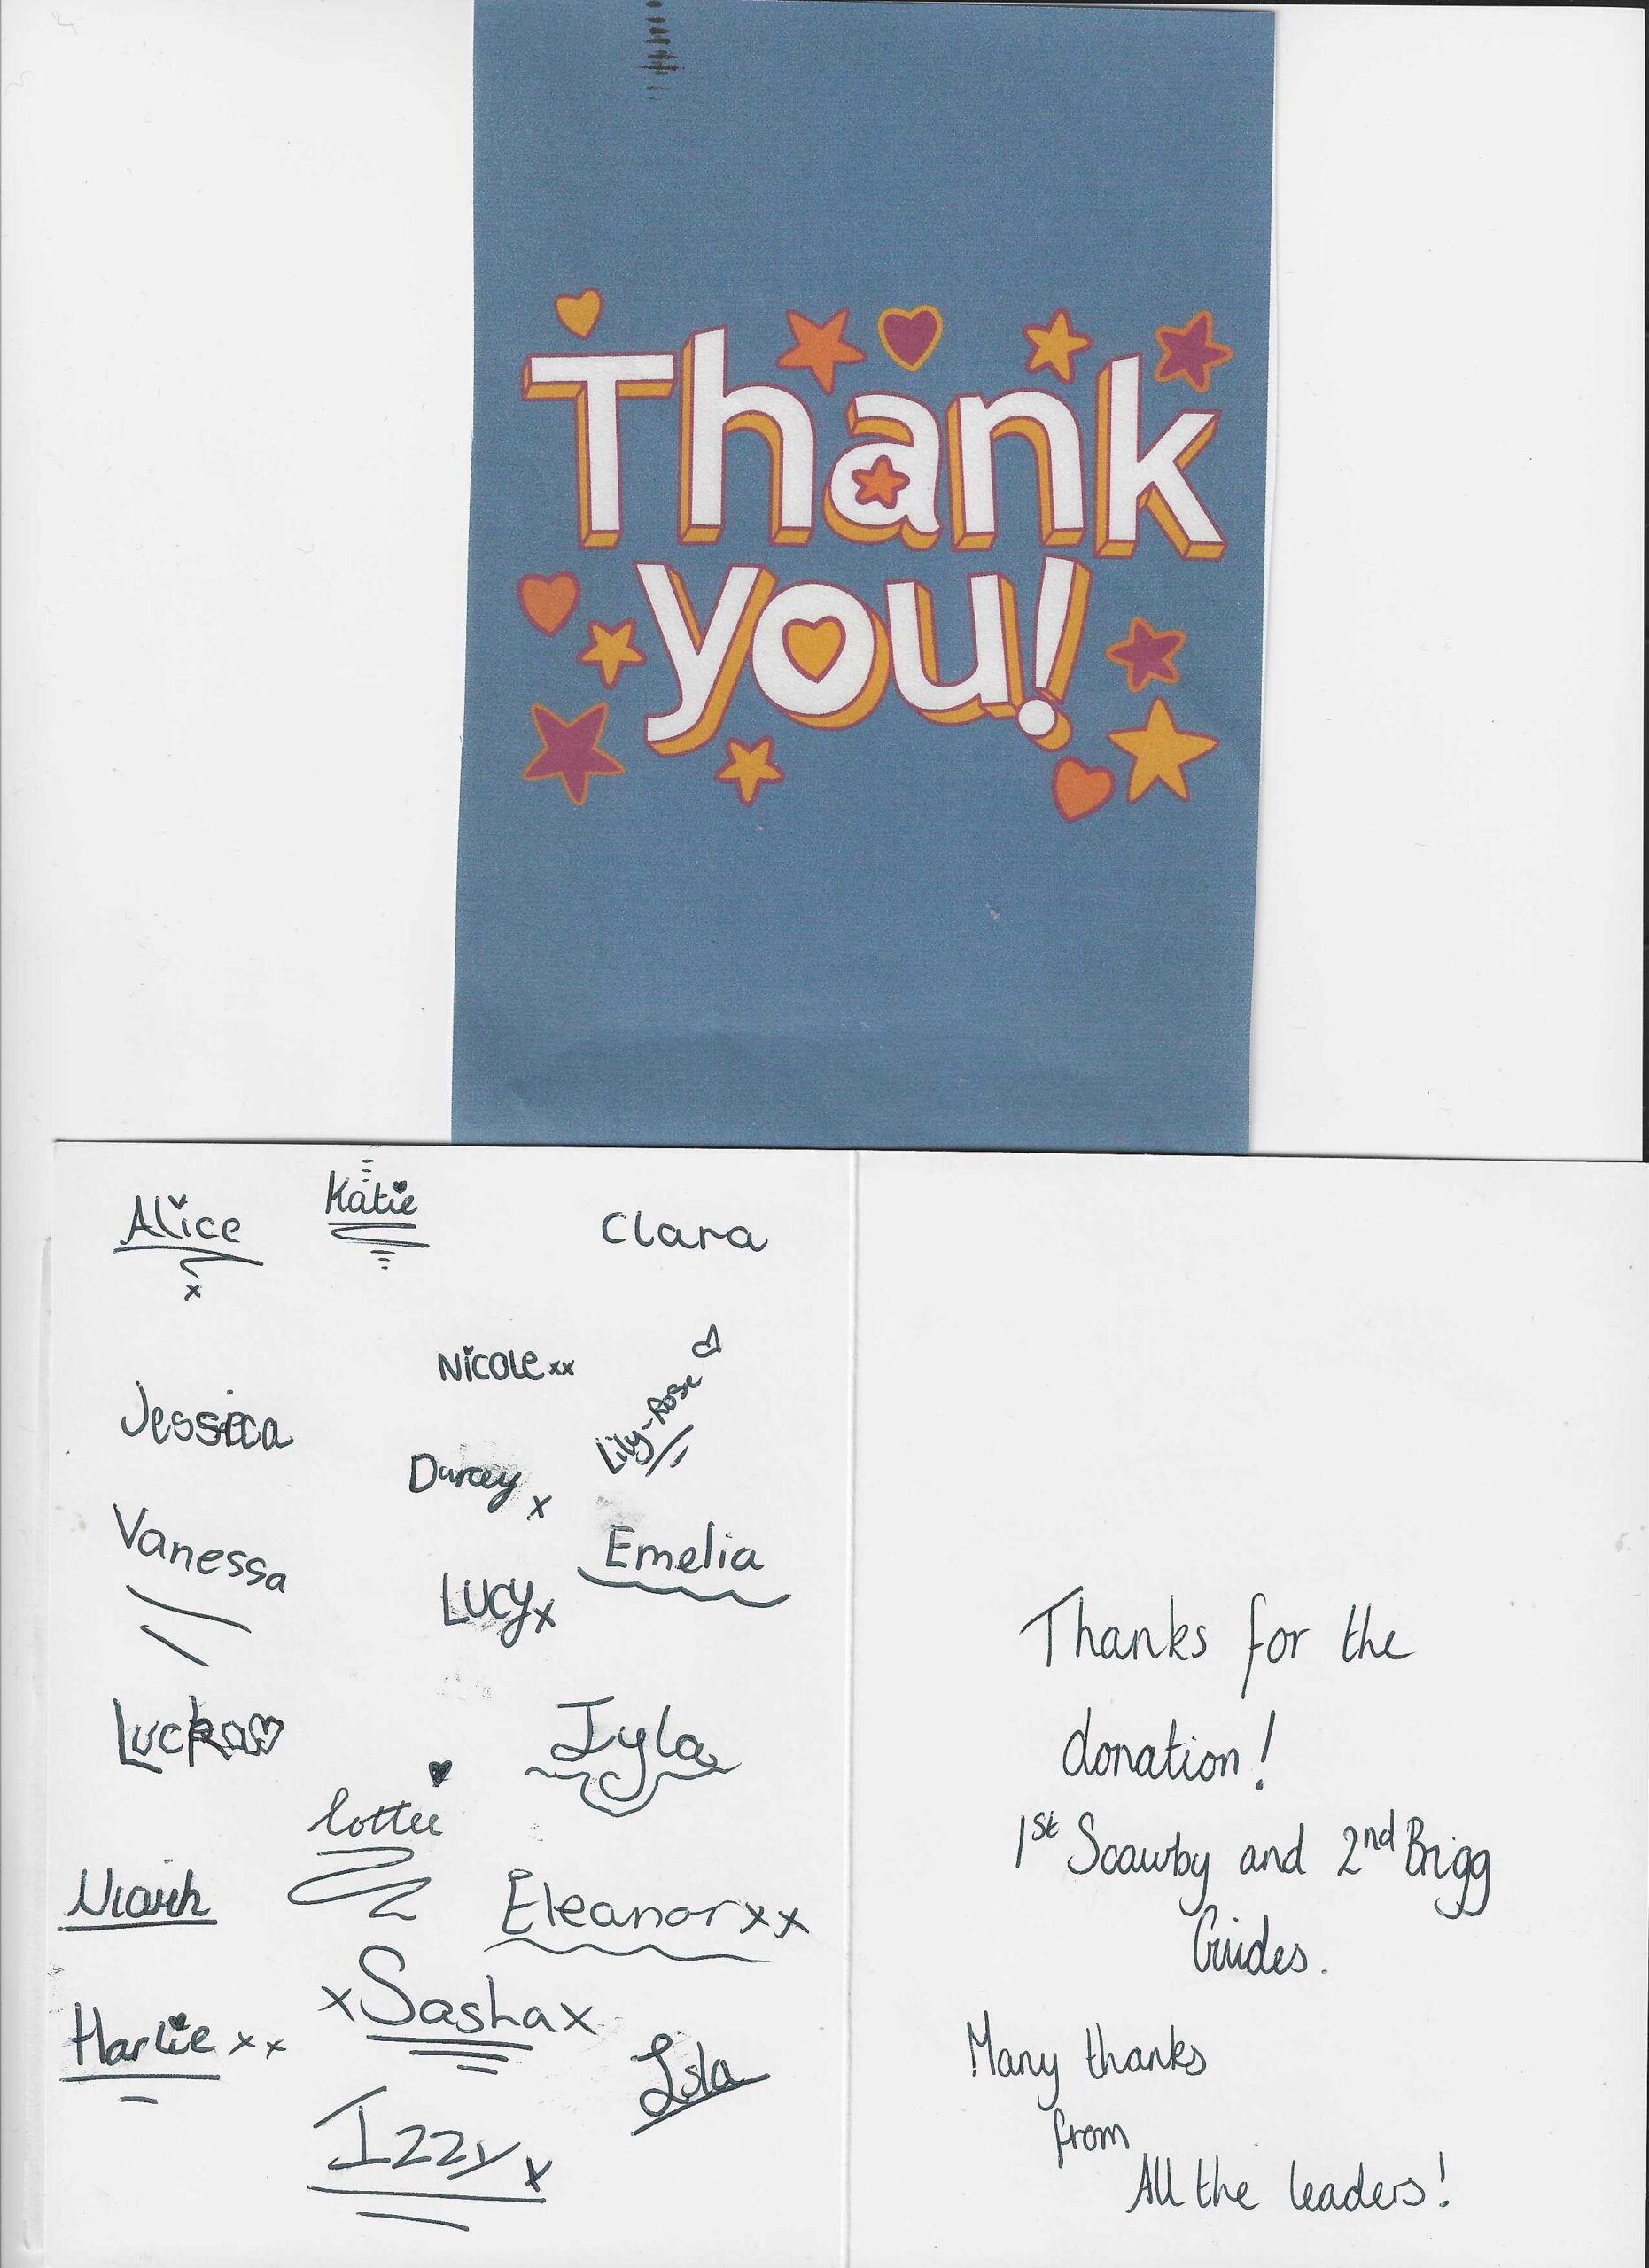 Thank
you!
Alice
x
Katie
Clara
Nicole xx
Lily-Rose
Jessica
Darcey x
Vanessa
Emelia
Lucy x
Lottie
Eleanor xx
x Sasha x
Harlie xx
Izzy x
Thanks for the
donation!
1st Scawby and 2nd Brigg
Guides.
Many thanks
from
All the leaders!